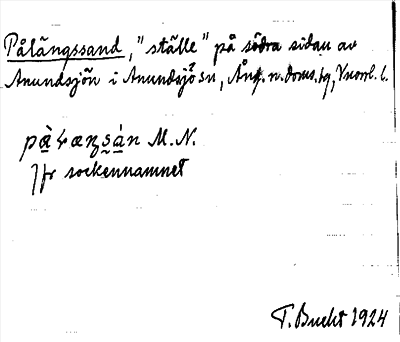 Pålängssand, "ställe" på södra sidan av
Anundsjön i Anundsjö sn, Ång. n. doms. hg, Vnorrl. l.
M. N.
Jfr sockennamnet
T. Bucht 1924